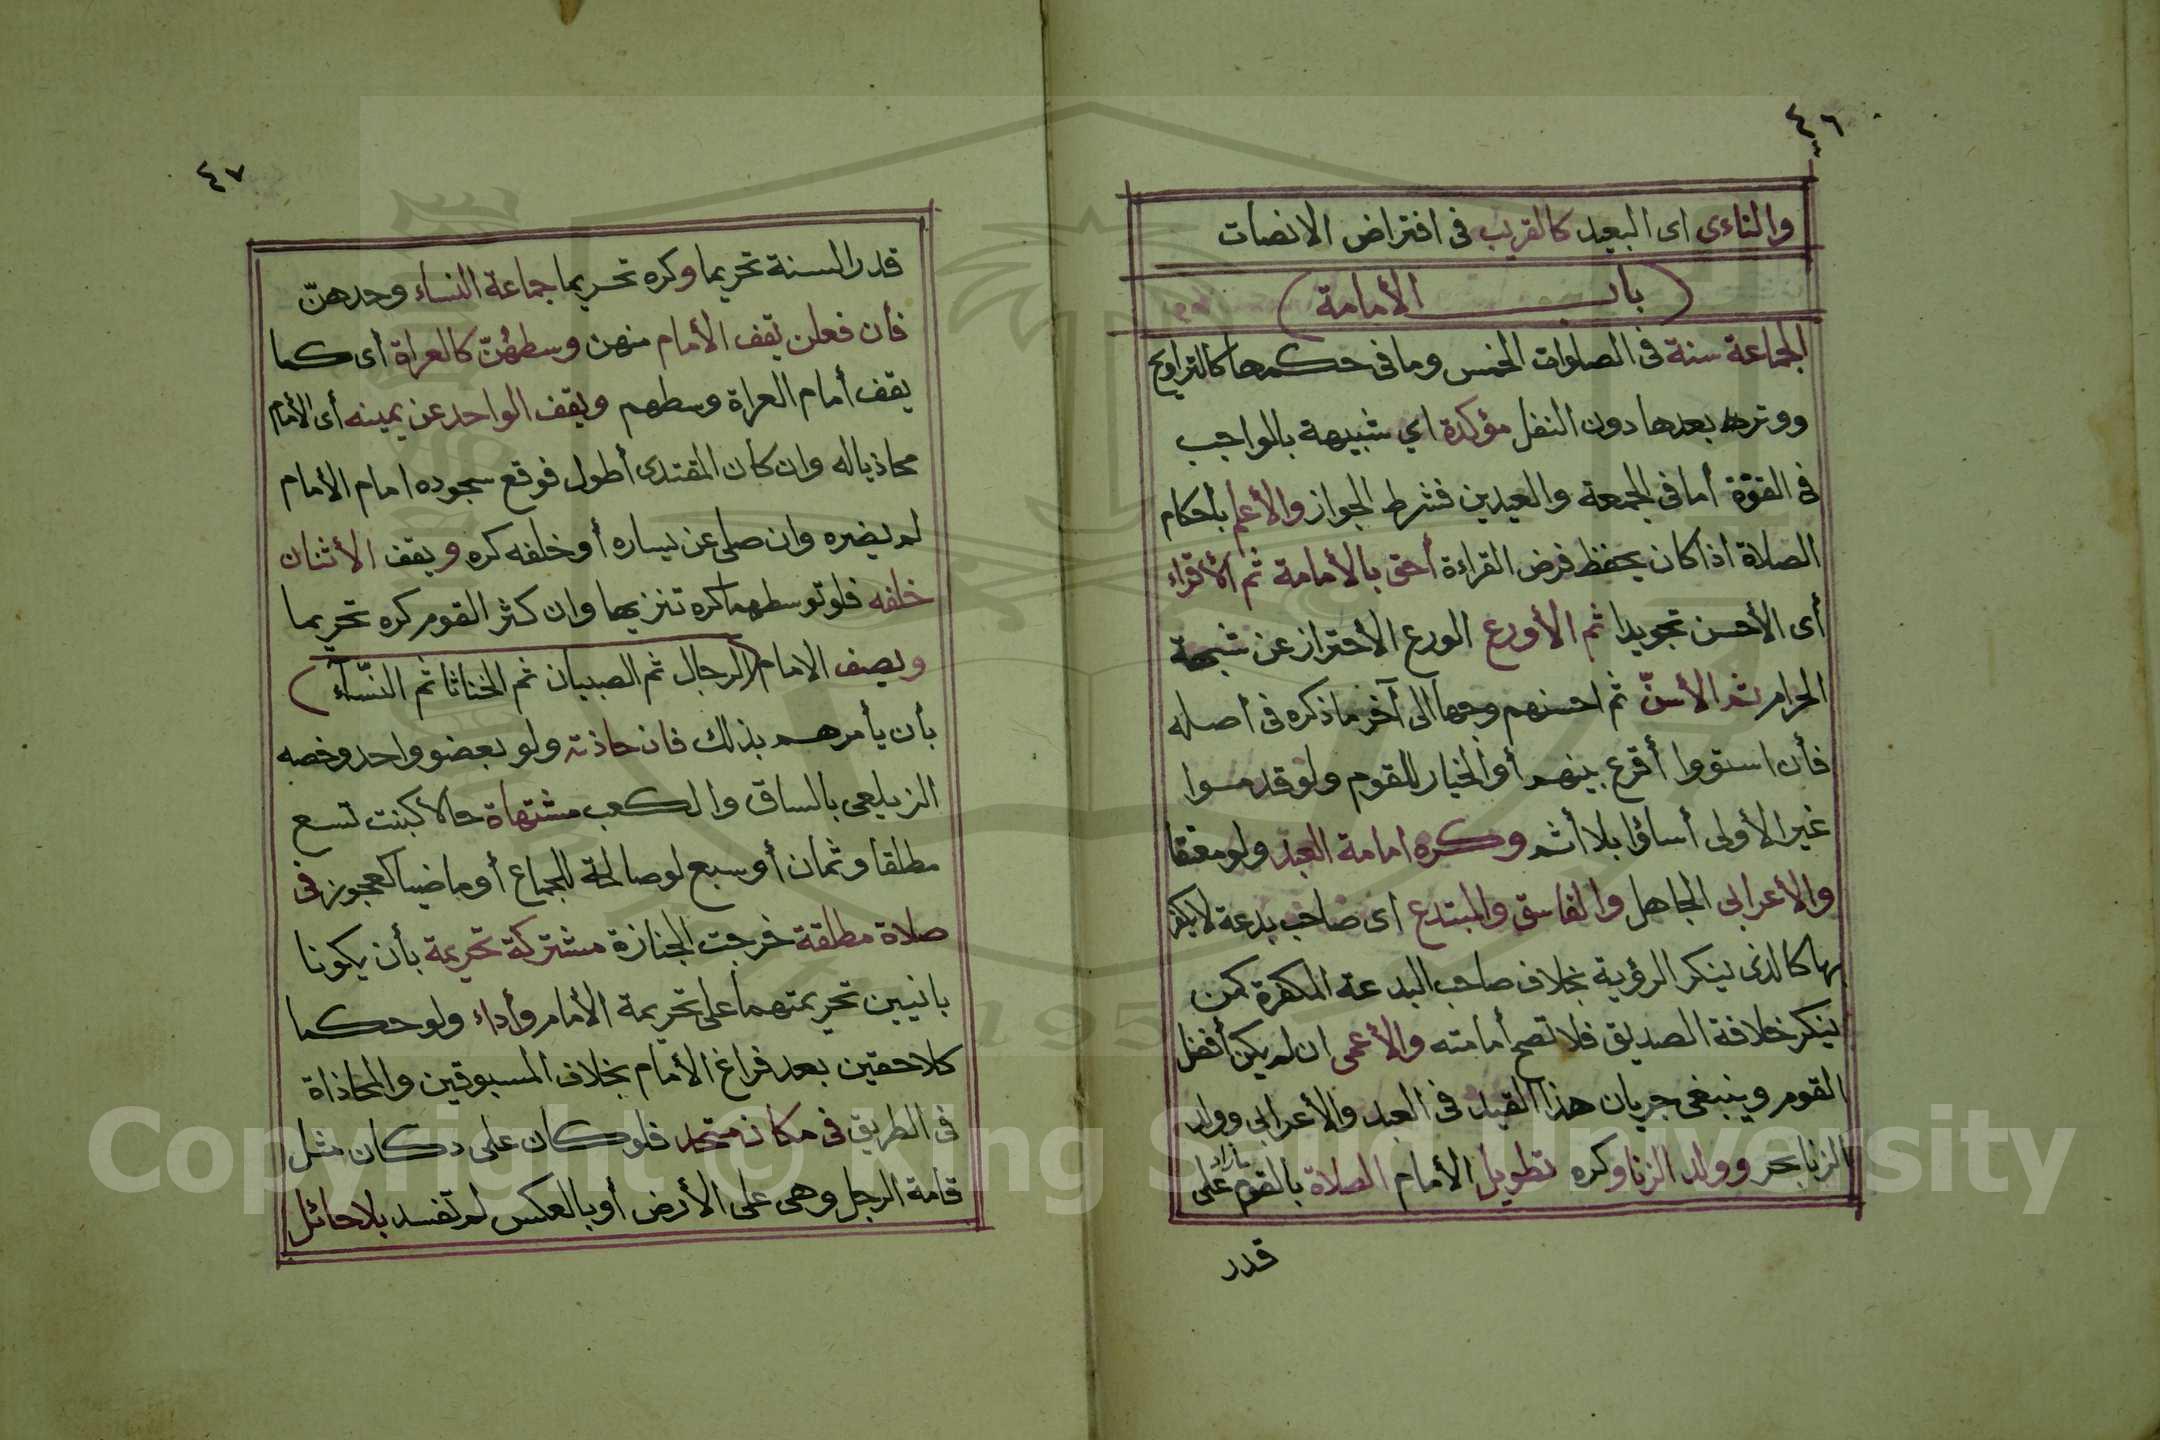 ٤٦
والناءى اى البعيد كالقريب فى افتراض الانصات
باب الأمامة
الجماعة سنة فى الصلوات الخمس وما فى حكمها كالتراويح
ووترها بعدها دون النفل مؤكدة اي شبيهة بالواجب
فى القوّة أما فى الجمعة والعيدين فشرط الجواز والأعلم بأحكام
الصلاة اذا كان يحفظ فرض القراءة أحق بالأمامة ثم الأقراء
أى الأحسن تجويدا ثم الأورع الورع الأحتراز عن شبهة
الحرام ثم الأسنّ ثم احسنهم وجها آلى آخر ما ذكره فى أصله
فأن استووا أقرع بينهم أو الخيار للقوم ولو قدموا
غير الأولى أساؤا بلا أثم وكره امامة العبد ولو معتقا
والأعرابى الجاهل والفاسق والمبتدع اى صاحب بدعة لا يكفر
بها كالذى ينكر الرؤية بخلاف صاحب البدعة المكفرة كمن
ينكر خلافة الصديق فلا تصح أمامته والأعمى ان لم يكن أفضل
القوم وينبغى جريان هذا القيد فى العبد والأعرابى وولد
الزنا بحر وولد الزنا وكره تطويل الأمام الصلاة بالقوم زائدا على
قدر
٤٧
قدر السنة تحريما وكره تحريما جماعة النساء وحدهنّ
فأن فعلن يقف الأمام منهن وسطهُنّ كالعراة أى كما
يقف أمام العراة وسطهم ويقف الواحد عن يمينه أى الأمام
محاذيا له وان كأن المقتدى أطول فوقع سجوده امام الأمام
لم يضره وان صلى عن يساره أو خلفه كره ويقف الأثنان
خلفه فلو توسطهما كره تنزيها وان كثر القوم كره تحريما
ويصف الامام الرجال ثم الصبيان ثم الخناثا ثم النسّاء
بأن يأمرهم بذلك فان حاذته ولو بعضو واحد وخصه
الزيلعى بالساق والكعب مشتهاة حالا كبنت تسع
مطلقا وثمان أو سبع لو صالحة للجماع أو ماضيا كعجوز فى
صلاة مطلقة خرجت الجنازة مشتركة تحريمة بأن يكونا
بانيين تحريمتهما على تحريمة الأمام وأداء ولو حكما
كلاحقين بعد فراغ الأمام بخلاف المسبوقين والمحاذاة
فى الطريق فى مكان متحد فلو كان على دكان مثل
قامة الرجل وهى على الأرض أو بالعكس لم تفسد بلا حائل
Copyright © King Saud University
195